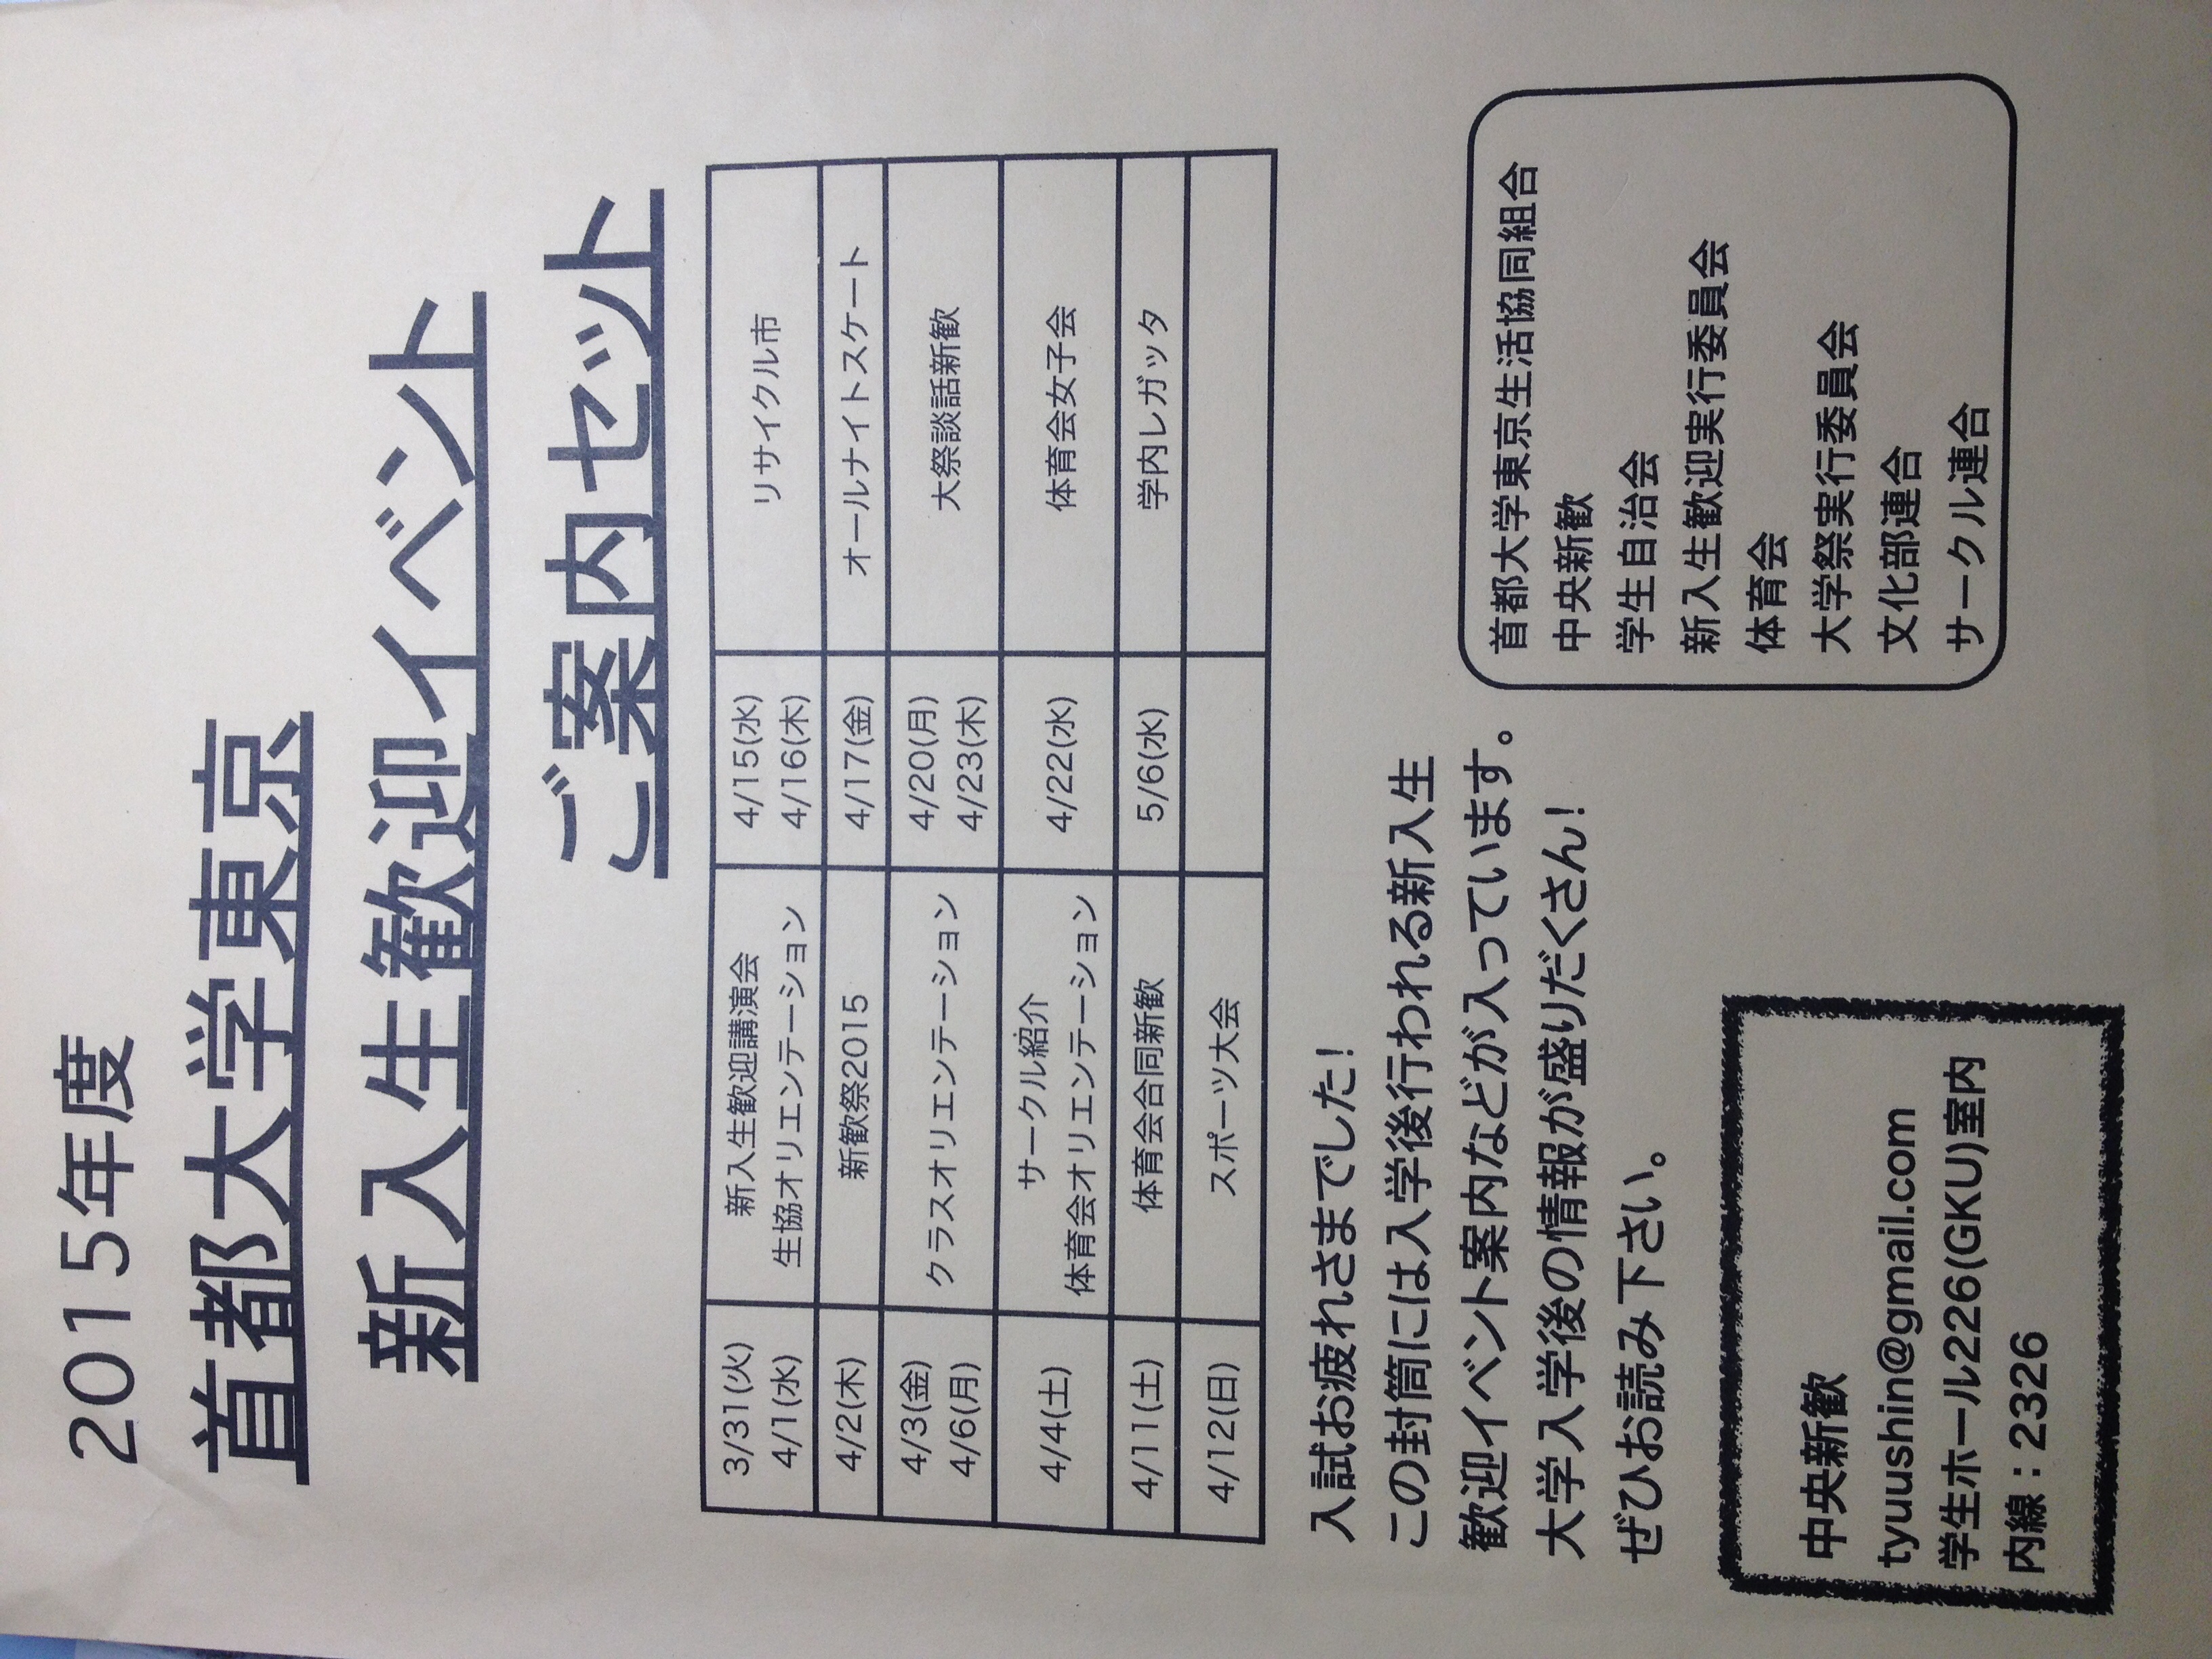 2015年度
首都大学東京
新入生歓迎イベント
ご案内セット
3/31(火) 新入生歓迎講演会 4/15(水) リサイクル市
4/1(水) 生協オリエンテーション 4/16(木)
4/2(木) 新歓祭2015 4/17(金) オールナイトスケート
4/3(金) クラスオリエンテーション 4/20(月) 大祭談話新歓
4/6(月) 4/23(木)
4/4(土) サークル紹介 4/22(水) 体育会女子会
体育会オリエンテーション
4/11(土) 体育会合同新歓 5/6(水) 学内レガッタ
4/12(日) スポーツ大会
入試お疲れさまでした！
この封筒には入学後行われる新入生
歓迎イベント案内などが入っています。
大学入学後の情報が盛りだくさん！
ぜひお読み下さい。
首都大学東京生活協同組合
中央新歓
学生自治会
新入生歓迎実行委員会
体育会
大学祭実行委員会
文化部連合
サークル連合
中央新歓
tyuushin@gmail.com
学生ホール226(GKU)室内
内線：2326